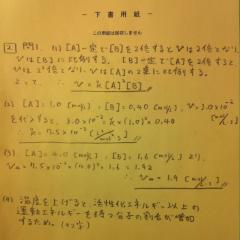 －下書用紙－
この用紙は採点しません
2 問1. (1) [A]一定で[B]を2倍するとvは2倍となり、
vは[B]に比例する。[B]一定で[A]を2倍すると、
vは2²倍となり、vは[A]の2乗に比例する。
よって、v = k[A]²[B]
(2) [A]=1.0 (mol/L), [B]=0.40 (mol/L), v=3.0×10⁻²
を代入すると、3.0×10⁻² = k(1.0)²×0.40
∴ k = 7.5×10⁻²
(3) [A]=4.0 (mol/L), [B]=1.6 (mol/L) より、
v = 7.5×10⁻² × (4.0)² × 1.6 = 1.92
(4) 温度を上げると、活性化エネルギー以上の
運動エネルギーを持つ分子の割合が増加
するため。